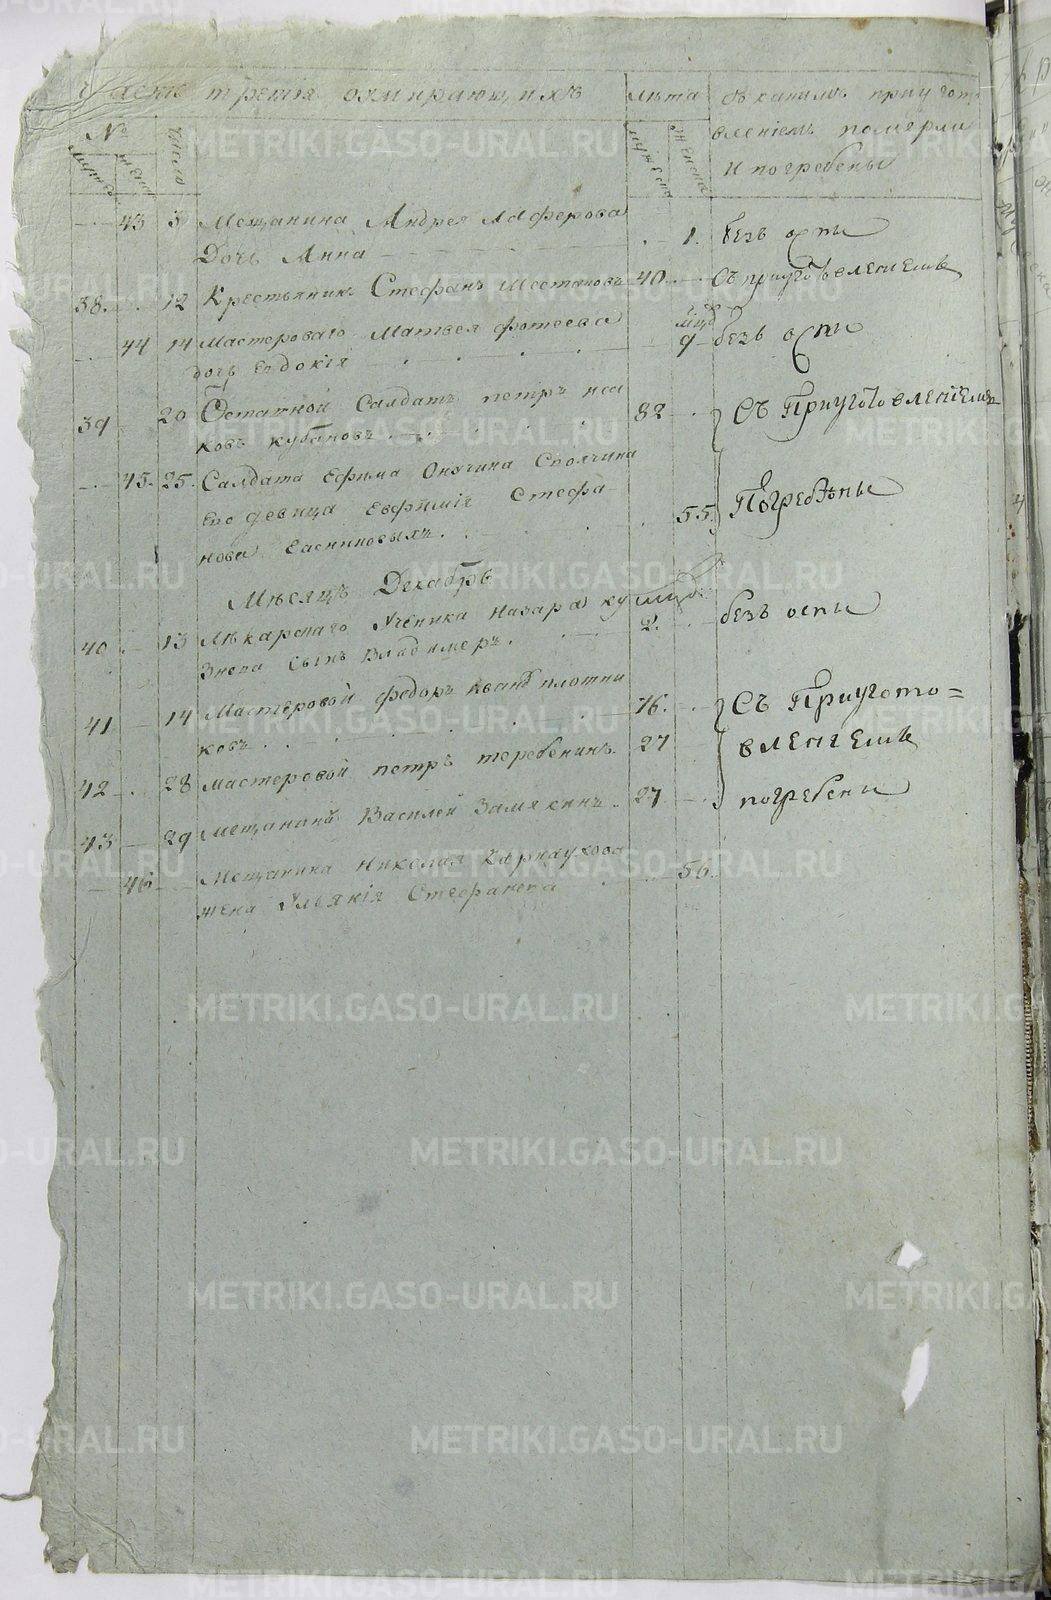 Часть третія оумирающихъ лѣта съ какимъ приугото
влениемъ померли
и погребены
№ число
мужеска женска мужеска женска
43 3 Мещанина Андрея Алферова
Дочь Анна 1. безъ оспы
38. 12 Крестьянинъ Стефанъ Шестаковъ 40 Съ приуготовлениемъ
44 14 Мастероваго Матвея Фотеева мцъ
дочь Евдокія 9 безъ оспы
39 20 Остатной Салдатъ петръ иса
ковъ кубановъ 82 Съ Приуготовлениемъ
45. 25. Салдата Ефима
Его девица Евфимія Стефа
нова 55. Погребены
Мѣсяцъ Декабрь
40 13 Лѣкарскаго Ученика Назара ку мцъ
знеца сынъ Владимеръ. 2. безъ оспы
41 14 Мастеровой федоръ Ивановъ плотни
ковъ 76. Съ Приугото=
42 28 мастеровой петръ теребенинъ. 27 влениемъ
43 29 Мещанинъ Василей Замякинъ. 27. погребены
46 Мещанина Николая Карнаухова
жена Улья́нія Стефанова 56.
METRIKI.GASO-URAL.RU